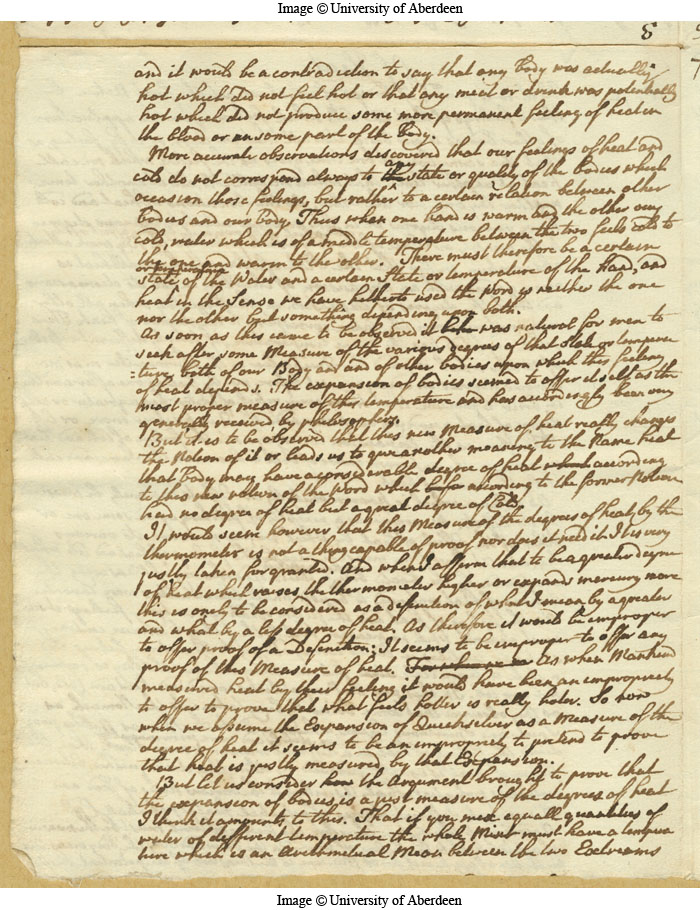 Image © University of Aberdeen
8
and it would be a contradiction to say that any Body was actually
hot which did not feel hot or that any meat or drink was potentially
hot which did not produce some more permanent feeling of heat in
the blood or in some part of the Body.
More accurate observations discovered that our feelings of heat and
cold do not correspond always to the any state or quality of the Bodies which
occasion those feelings, but rather to a certain relation between other
bodies and our body. Thus when one hand is warm and the other very
cold, water which is of a middle temperature between the two feels cold to
the one and warm to the other. There must therefore be a certain
or temperature
State of the Water and a certain State or temperature of the Hand, and
heat in the Sense we have hitherto used the Word is neither the one
nor the other but something depending upon both.
As soon as this came to be observed it was natural for men to
seek after some Measure of the various degrees of that State or tempera
=ture both of our Body and of other bodies upon which this feeling
of heat depends. The expansion of bodies seemed to offer itself as the
most proper measure of this temperature and has accordingly been very
generally received by philosophers.
But it is to be observed that this new Measure of heat really changes
the Notion of it or leads us to give another meaning to the Name heat
that Body may have a considerable degree of heat which according
to this new notion of the Word which according to the former Notion
had no degree of heat but a great degree of Cold
It would seem however that this Measure of the degrees of heat by the
thermometer is not a thing capable of proof nor does it need it. It is very
justly taken for granted. And when I affirm that to be a greater degree
of heat which raises the thermometer higher or expands mercury more
this is onely to be considered as a definition of what I mean by a greater
and what by a less degree of heat. As therefore it would be improper
to offer proof of a Definition; It seems to be improper to offer any
proof of this Measure of heat. As when Mankind
measured heat by their feeling it would have been an impropriety
to offer to prove that what feels hotter is really hoter. So now
when we assume the Expansion of Quicksilver as a Measure of the
degree of heat it seems to be an impropriety to pretend to prove
that heat is justly measured by that Expansion.
But let us consider how the Argument brought to prove that
the expansion of bodies is a just measure of the degrees of heat
I think it amounts to this. That if you mix equall quantities of
water of different temperature the whole Mixt must have a tempera
ture which is an Arithmetical Mean between the two Extreams
Image © University of Aberdeen